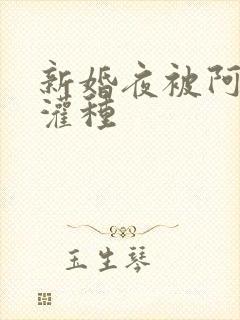 新婚夜被阿
灌種
玉生琴